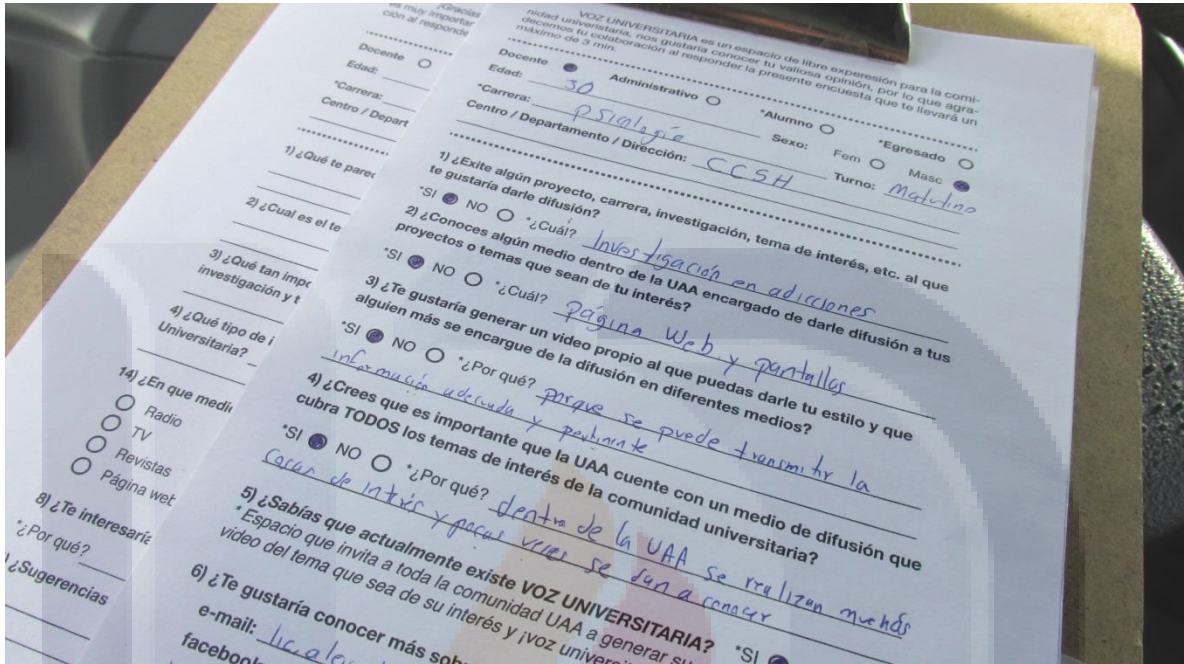 ¡Gracias
es muy importan
ción al responde
Docente
Edad:
*Carrera:
Centro / Depart
1) ¿Qué te parec
2) ¿Cual es el te
3) ¿Qué tan impo
investigación y t
4) ¿Qué tipo de i
Universitaria?
14) ¿En que medi
Radio
TV
Revistas
Página web
8) ¿Te interesaría
*¿Por qué?
¿Sugerencias
VOZ UNIVERSITARIA es un espacio de libre experesión para la comi-
nidad univeristaria, nos gustaría conocer tu valiosa opinión, por lo que agra-
decemos tu colaboración al responder la presente encuesta que te llevará un
máximo de 3 min.
Docente Administrativo *Alumno *Egresado
Edad: 30 Sexo: Fem Masc
*Carrera: psicología Turno: Matutino
Centro / Departamento / Dirección: CCSH
1) ¿Exite algún proyecto, carrera, investigación, tema de interés, etc. al que
te gustaría darle difusión?
*SI NO *¿Cuál? Investigación en adicciones
2) ¿Conoces algún medio dentro de la UAA encargado de darle difusión a tus
proyectos o temas que sean de tu interés?
*SI NO *¿Cuál? Página Web. y pantallas
3) ¿Te gustaría generar un video propio al que puedas darle tu estilo y que
alguien más se encargue de la difusión en diferentes medios?
*SI NO *¿Por qué? porque se puede transmitir la
información adecuada y pertinente
4) ¿Crees que es importante que la UAA cuente con un medio de difusión que
cubra TODOS los temas de interés de la comunidad universitaria?
*SI NO *¿Por qué? dentro de la UAA se realizan muchas
cosas de interés y pocas veces se dan a conocer
5) ¿Sabías que actualmente existe VOZ UNIVERSITARIA? *SI
* Espacio que invita a toda la comunidad UAA a generar su
video del tema que sea de su interés y ¡voz univers
6) ¿Te gustaría conocer más sob
e-mail: lic.ale
facebook